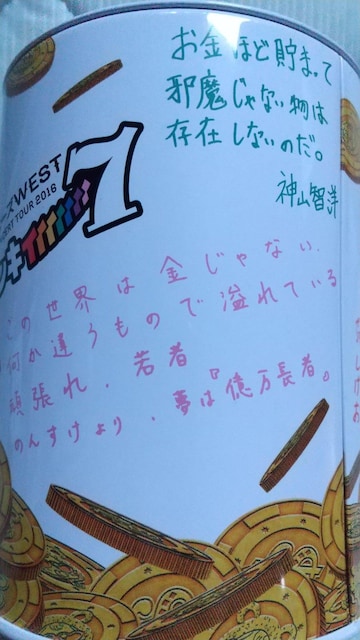 お金ほど貯まって
邪魔じゃない物は
存在しないのだ。
神山智洋
ズWEST
CERT TOUR 2016
ッキィィィィィィィ7
この世界は金じゃない、
何か違うもので溢れている
頑張れ、若者
のんすけより、夢は『億万長者。